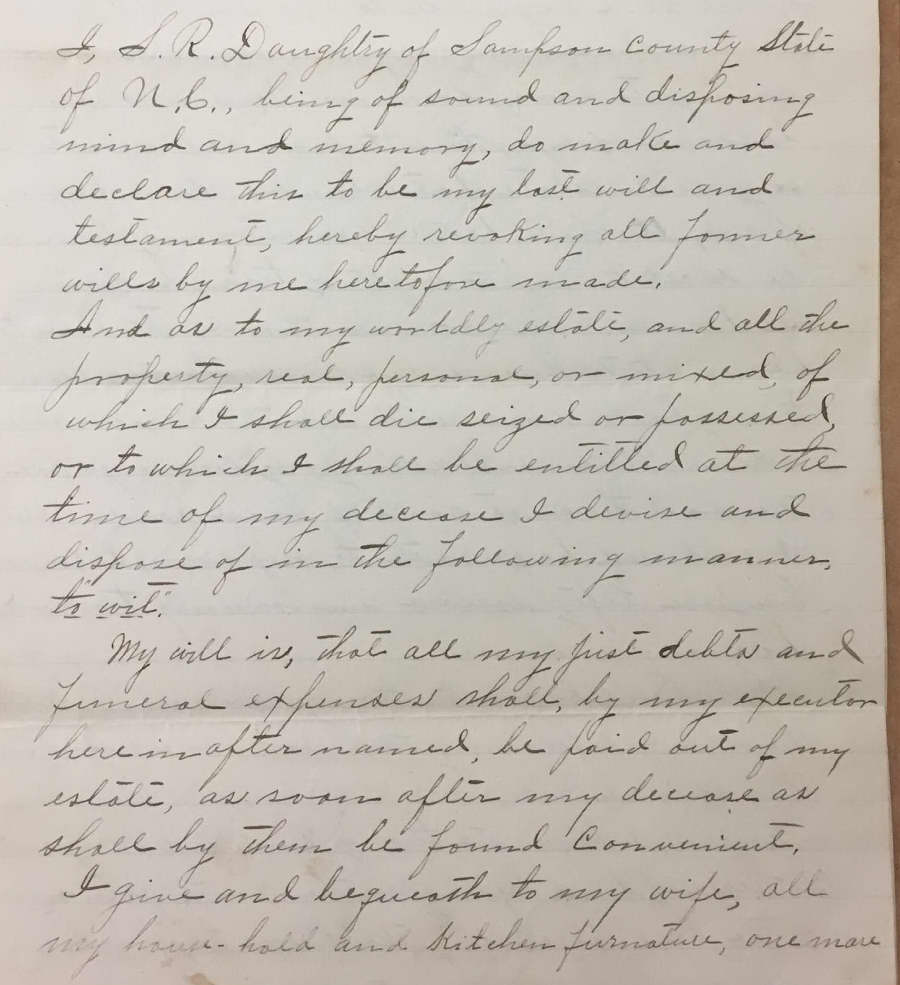 I, S. R. Daughtry of Sampson County State
of N.C., being of sound and disposing
mind and memory, do make and
declare this to be my last will and
testament, hereby revoking all former
wills by me heretofore made.
And as to my worldly estate, and all the
property, real, personal, or mixed, of
which I shall die seized or possessed,
or to which I shall be entitled at the
time of my decease I devise and
dispose of in the following manner,
"to wit".
My will is, that all my just debts and
funeral expenses shall, by my executor
here in after named, be paid out of my
estate, as soon after my decease as
shall by them be found Convenient.
I give and bequeath to my wife, all
my house-hold and Kitchen furnature, one mare